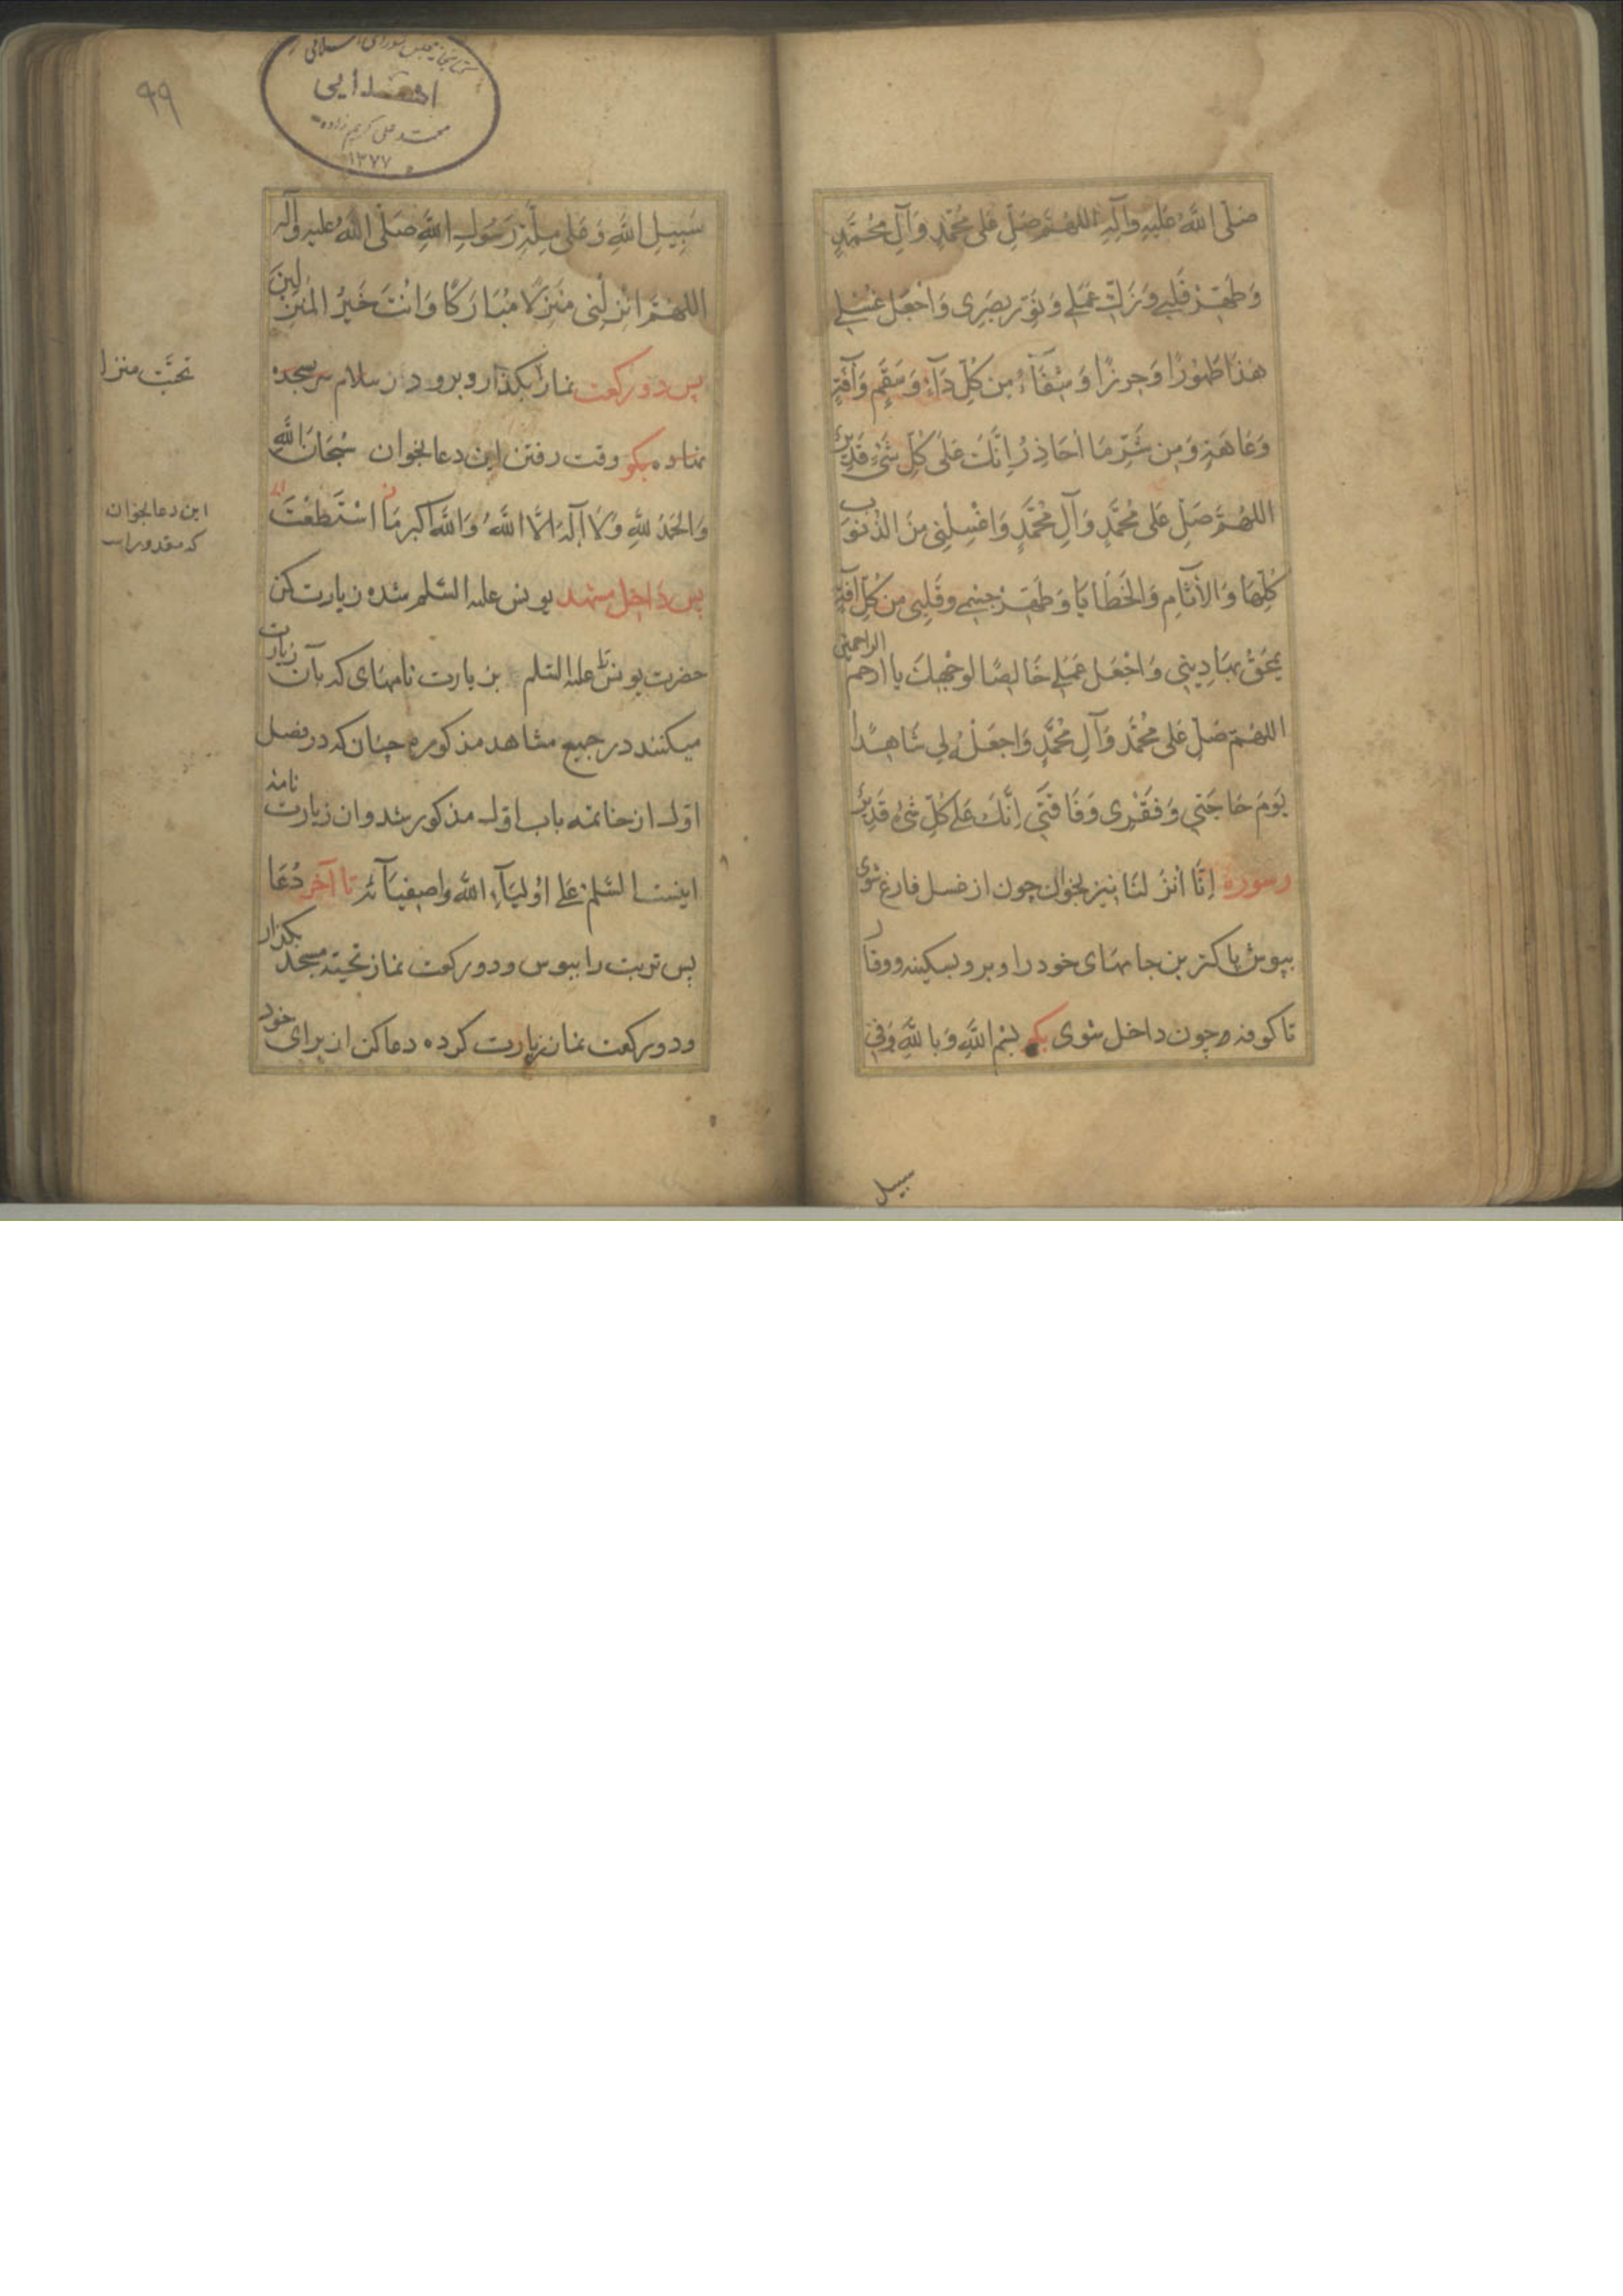 صَلَّی اللهُ عَلَیهِ وَآلِهِ اللهُمَّ صَلِّ عَلی مُحَمَّدٍ وَآلِ مُحَمَّدٍ
وَطَهِّرْ قَلبی وَزَكِّ عَمَلی وَنَوِّر بَصَری وَاجْعَل غُسْلی
هٰذَا طَهُورًا وَحِرزًا وَشِفَآءً مِن كُلِّ دَآءٍ وَسَقَمٍ وَآفَةٍ
وَعَاهَةٍ وَمِن شَرِّ مَا اُحَاذِرُ اِنَّكَ عَلی كُلِّ شَیْءٍ قَدِیرٌ
اللهُمَّ صَلِّ عَلی مُحَمَّدٍ وَآلِ مُحَمَّدٍ وَاغْسِلْنِی مِنَ الذُّنوُبِ
كُلِّهَا وَالآثَامِ وَالخَطَایَا وَطَهِّرْ جِسمِی وَقَلبِی مِن كُلِّ آفَةٍ
یَمحَقُ بِهَا دِینِی وَاجْعَل عَمَلی خَالِصًا لِوَجْهِكَ یا ارحم الراحمین
اللهُمَّ صَلِّ عَلی مُحَمَّدٍ وَآلِ مُحَمَّدٍ وَاجعَلْهُ لِی شَاهِدًا
یَومَ حَاجَتِی وَفَقْرِی وَفَاقَتِی اِنَّكَ عَلی كُلِّ شَیْءٍ قَدِیرٌ
وسوره اِنَّا اَنْزَلنَا نیز بخوان چون از غسل فارغ شوی
بپوش پاکترین جامهای خود را و برو بسکینه و وقار
تا کوفه و چون داخل شوی بکو بِسْمِ اللهِ وَبِاللهِ وَفِی
سبیل
۹۹
کتابخانه مجلس شورای اسلامی
اهدایی
محمد علی کریم زاده
۱۳۷۷
سَبِیلِ اللهِ وَعَلی مِلَّةِ رَسُولِ اللهِ صَلَّی اللهُ علیه وآله
اللهُمَّ اَنْزِلْنِی مُنْزَلًا مُبَارَكًا وَاَنْتَ خَیرُ المُنْزِلِینَ
پس دو رکعت نماز بکذار و برو در سلام سر بسجده
نهاده بکو وقت رفتن این دعا بخوان سُبْحَانَ اللهِ
وَالحَمْدُ لِلّهِ وَلَا اِلَهَ اِلَّا اللهُ وَاللهُ اکبر مَا اسْتَطَعْتَ
پس داخل مشهد یونس علیه السّلم شده زیارت کن
حضرت یونس علیه السّلم بزیارت نامهای که بآن زیارت
میکنند در جمیع مشاهد مذکوره چنان که در فصل
اوّل از خاتمه باب اوّل مذکور شد و ان زیارت نامه
اینست السّلم عَلی اَوْلِیَآءِ اللهِ واصفیَآئِه تا آخر دُعَا
پس تربت را ببوس و دو رکعت نماز تحیّة مسجد بکذار
و دو رکعت نماز زیارت کرده دعا کن از برای خود
این دعا بخوان